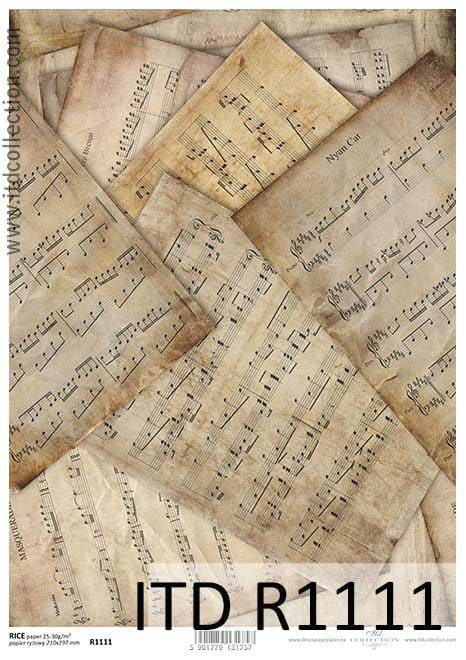 www.itdcollection.com
r Bretot
Nyan Cat
Piano
Piano
MASQUERA
ITD R1111
RICE paper 25-30g/m²
papier ryżowy 210x297 mm
R1111
5 901779 131757
www.decoupagepaper.eu
ITD.
COLLECTION
www.itdcollection.com